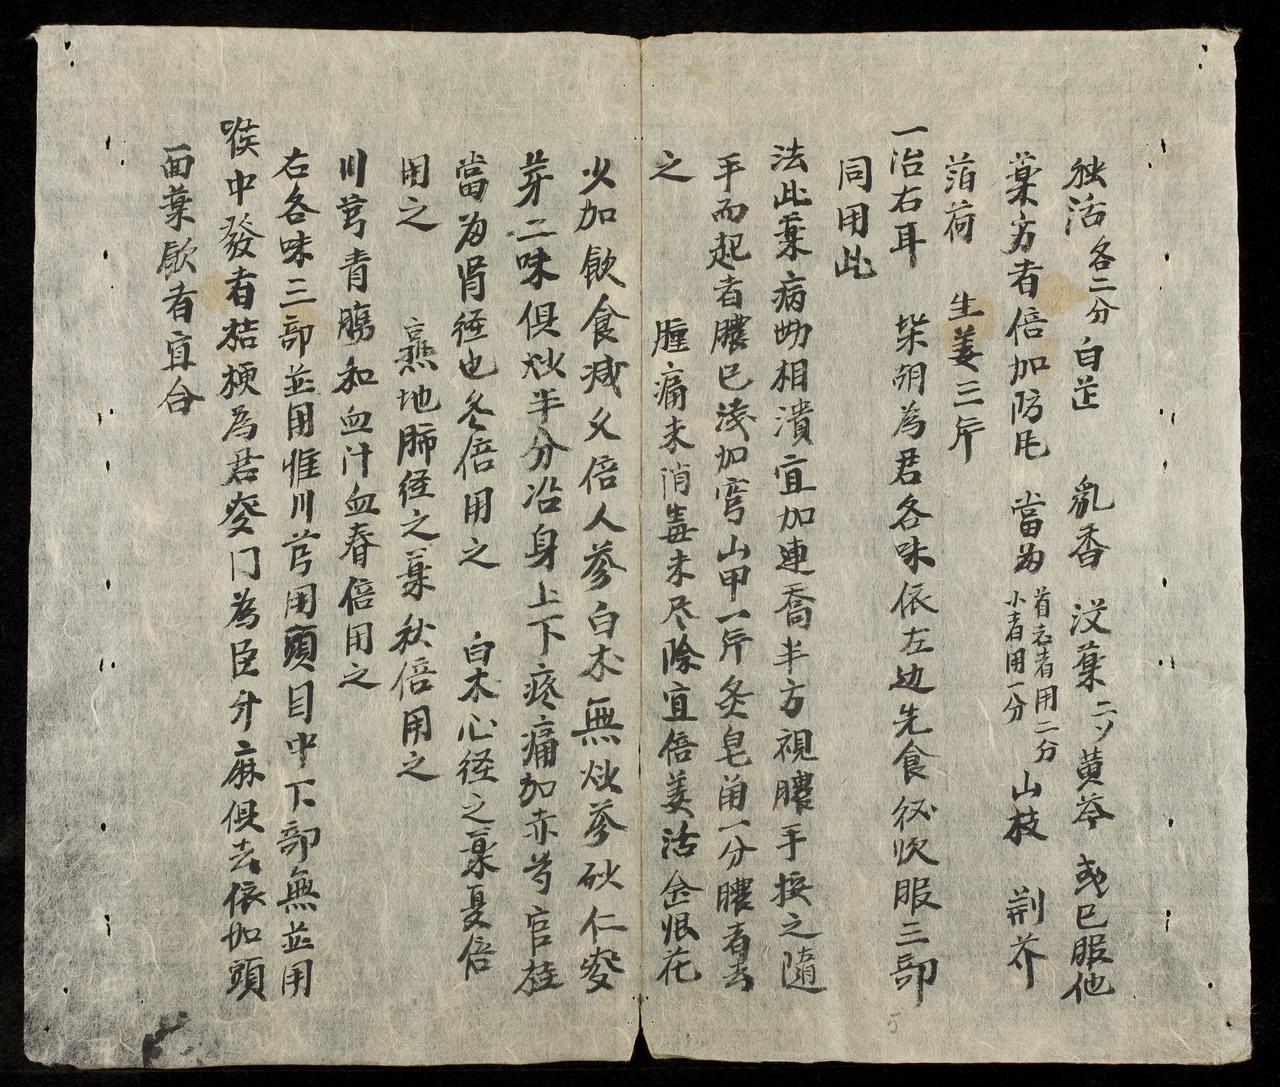 独活各二分 白芷 乳香 没藥二ツ 黄芩 或已服他
藥方者倍加防芪 當为首先者用二分小者用一分 山枝 荆芥
萡荷 生姜三斤
一治右耳 柴胡為君各味依左边先食後次服三部
同用此
法此藥病坳相潰宜加連喬半方視膿手按之隨
手而起者膿已淺加穹山甲一斤炙皂角一分膿者去
之 腫痛未消毒未尽除宜倍姜活金恨花
少加飲食减又倍人參白术無炒參砂仁麥
芽二味俱炒半分沿身上下疼痛加赤芍官桂
當为肾経也冬倍用之 白木心経之藥夏倍
用之 熹地肺経之藥秋倍用之
川芎青膓和血汁血春倍用之
右各味三部並用惟川芎用頭目中下部無並用
喉中發者桔梗為君麥门為臣升麻俱去依加頭
面藥飲者宜合
5